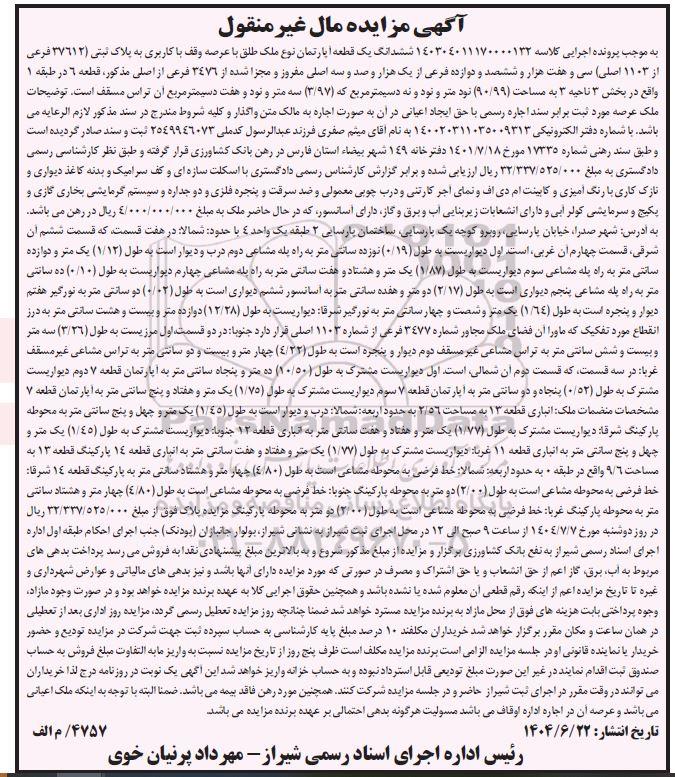 آگهی مزایده مال غیرمنقول
به موجب پرونده اجرایی کلاسه ۱۴۰۳۰۴۰۱۱۱۷۰۰۰۰۱۳۲ ششدانگ یک قطعه آپارتمان نوع ملک طلق با عرصه وقف با کاربری به پلاک ثبتی (۳۷۶۱۲ فرعی
از ۱۱۰۳ اصلی) سی و هفت هزار و ششصد و دوازده فرعی از یک هزار و صد و سه اصلی مفروز و مجزا شده از ۳۴۷۶ فرعی از اصلی مذکور، قطعه ۶ در طبقه ۱
واقع در بخش ۳ ناحیه ۳ به مساحت (۹۰/۹۹) نود متر و نود و نه دسیمترمربع که (۳/۹۷) سه متر و نود و هفت دسیمترمربع آن تراس مسقف است. توضیحات
ملک عرصه مورد ثبت برابر سند اجاره رسمی با حق ایجاد اعیانی در آن به صورت اجاره به مالک متن واگذار و کلیه شروط مندرج در سند مذکور لازم الرعایه می
باشد. با شماره دفتر الکترونیکی ۱۴۰۰۲۰۳۱۱۰۳۵۰۰۹۳۱۳ به نام آقای میثم صفری فرزند عبدالرسول کدملی ۲۵۴۹۹۴۶۰۷۳ ثبت و سند صادر گردیده است
و طبق سند رهنی شماره ۱۷۳۳۵ مورخ ۱۴۰۱/۷/۱۸ دفترخانه ۱۴۹ شهر بیضاء استان فارس در رهن بانک کشاورزی قرار گرفته و طبق نظر کارشناسی رسمی
دادگستری به مبلغ ۳۲/۳۳۷/۵۲۵/۰۰۰ ریال ارزیابی شده و برابر گزارش کارشناس رسمی دادگستری با اسکلت سازه ای و کف سرامیک و بدنه کاغذ دیواری و
نازک کاری با رنگ آمیزی و کابینت ام دی اف و نمای آجر کارتنی و درب چوبی معمولی و ضد سرقت و پنجره فلزی و دو جداره و سیستم گرمایشی بخاری گازی و
پکیج و سرمایشی کولر آبی و دارای انشعابات زیربنایی آب و برق و گاز، دارای آسانسور، که در حال حاضر ملک به مبلغ ۴/۰۰۰/۰۰۰/۰۰۰ ریال در رهن می باشد.
به آدرس: شهر صدرا، خیابان پارسایی، روبرو کوچه یک پارسایی، ساختمان پارسایی ۲ طبقه یک واحد ۴ با حدود: شمالا: در هفت قسمت، که قسمت ششم آن
شرقی، قسمت چهارم آن غربی، است. اول دیواریست به طول (۰/۱۹) نوزده سانتی متر به راه پله مشاعی دوم درب و دیوار است به طول (۱/۱۲) یک متر و دوازده
سانتی متر به راه پله مشاعی سوم دیواریست به طول (۱/۸۷) یک متر و هشتاد و هفت سانتی متر به راه پله مشاعی چهارم دیواریست به طول (۰/۱۰) ده سانتی
متر به راه پله مشاعی پنجم دیواری است به طول (۲/۱۷) دو متر و هفده سانتی متر به آسانسور ششم دیواری است به طول (۰/۰۲) دو سانتی متر به نورگیر هفتم
دیوار و پنجره است به طول (۱/۶۴) یک متر و شصت و چهار سانتی متر به نورگیر شرقا: دیواریست به طول (۱۲/۲۸) دوازده متر و بیست و هشت سانتی متر به درز
انقطاع مورد تفکیک که ماورا آن فضای ملک مجاور شماره ۳۴۷۷ فرعی از شماره ۱۱۰۳ اصلی قرار دارد جنوبا: در دو قسمت، اول مرزیست به طول (۳/۲۶) سه متر
و بیست و شش سانتی متر به تراس مشاعی غیر مسقف دوم دیوار و پنجره است به طول (۴/۲۲) چهار متر و بیست و دو سانتی متر به تراس مشاعی غیرمسقف
غربا: در سه قسمت، که قسمت دوم آن شمالی، است. اول دیواریست مشترک به طول (۱۰/۵۰) ده متر و پنجاه سانتی متر به آپارتمان قطعه ۷ دوم دیواریست
مشترک به طول (۰/۵۲) پنجاه و دو سانتی متر به آپارتمان قطعه ۷ سوم دیواریست مشترک به طول (۱/۷۵) یک متر و هفتاد و پنج سانتی متر به آپارتمان قطعه ۷
مشخصات منضمات ملک: انباری قطعه ۱۳ به مساحت ۲/۵۶ به حدود اربعه: شمالا: درب و دیوار است به طول (۱/۴۵) یک متر و چهل و پنج سانتی متر به محوطه
پارکینگ شرقا: دیواریست مشترک به طول (۱/۷۷) یک متر و هفتاد و هفت سانتی متر به انباری قطعه ۱۲ جنوبا: دیواریست مشترک به طول (۱/۴۵) یک متر و
چهل و پنج سانتی متر به انباری قطعه ۱۱ غربا: دیواریست مشترک به طول (۱/۷۷) یک متر و هفتاد و هفت سانتی متر به انباری قطعه ۱۴ پارکینگ قطعه ۱۳ به
مساحت ۹/۶ واقع در طبقه ۰ به حدود اربعه: شمالا: خط فرضی به محوطه مشاعی است به طول (۴/۸۰) چهار متر و هشتاد سانتی متر به پارکینگ قطعه ۱۴ شرقا:
خط فرضی به محوطه مشاعی است به طول (۲/۰۰) دو متر به محوطه پارکینگ جنوبا: خط فرضی به محوطه مشاعی است به طول (۴/۸۰) چهار متر و هشتاد سانتی
متر به محوطه پارکینگ غربا: خط فرضی به محوطه مشاعی است به طول (۲/۰۰) دو متر به محوطه پارکینگ مزایده پلاک فوق از مبلغ ۳۲/۳۳۷/۵۲۵/۰۰۰ ریال
در روز دوشنبه مورخ ۱۴۰۴/۷/۷ از ساعت ۹ صبح الی ۱۲ در محل اجرای ثبت شیراز به نشانی شیراز، بولوار جانبازان (بودنک) جنب اجرای احکام طبقه اول اداره
اجرای اسناد رسمی شیراز به نفع بانک کشاورزی برگزار و مزایده از مبلغ مذکور شروع و به بالاترین مبلغ پیشنهادی نقدا به فروش می رسد پرداخت بدهی های
مربوط به آب، برق، گاز اعم از حق انشعاب و یا حق اشتراک و مصرف در صورتی که مورد مزایده دارای آنها باشد و نیز بدهی های مالیاتی و عوارض شهرداری و
غیره تا تاریخ مزایده اعم از اینکه رقم قطعی آن معلوم شده یا نشده باشد و همچنین حقوق اجرایی کلا به عهده برنده مزایده خواهد بود و در صورت وجود مازاد،
وجوه پرداختی بابت هزینه های فوق از محل مازاد به برنده مزایده مسترد خواهد شد ضمنا چنانچه روز مزایده تعطیل رسمی گردد، مزایده روز اداری بعد از تعطیلی
در همان ساعت و مکان مقرر برگزار خواهد شد خریداران مکلفند ۱۰ درصد مبلغ پایه کارشناسی به حساب سپرده ثبت جهت شرکت در مزایده تودیع و حضور
خریدار یا نماینده قانونی او در جلسه مزایده الزامی است برنده مزایده مکلف است ظرف پنج روز از تاریخ مزایده نسبت به واریز مابه التفاوت مبلغ فروش به حساب
صندوق ثبت اقدام نمایند در غیر این صورت مبلغ تودیعی قابل استرداد نبوده و به حساب خزانه واریز خواهد شد این آگهی یک نوبت در روزنامه درج لذا خریداران
می توانند در وقت مقرر در اجرای ثبت شیراز حاضر و در جلسه مزایده شرکت کنند. همچنین مورد رهن فاقد بیمه می باشد. ضمنا البته با توجه به اینکه ملک اعیانی
می باشد و عرصه آن در اجاره اداره اوقاف می باشد مسولیت هرگونه بدهی احتمالی بر عهده برنده مزایده می باشد.
تاریخ انتشار: ۱۴۰۴/۶/۲۲ ۴۷۵۷/م الف
رئیس اداره اجرای اسناد رسمی شیراز – مهرداد پرنیان خوی
ParsNamadData
۰۲۱-۸۸۳۴۹۶۷۰-۵